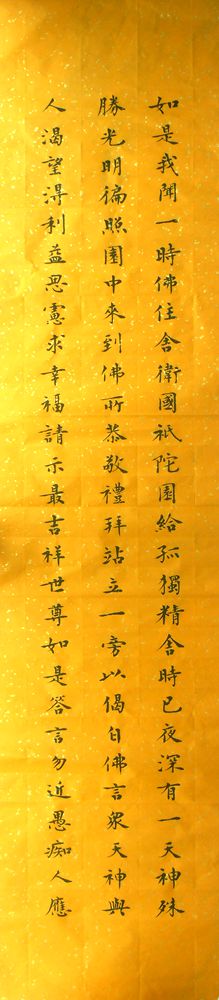 如是我聞一時佛住舍衛國祇陀園給孤獨精舍時已夜深有一天神殊
勝光明徧照園中來到佛所恭敬禮拜站立一旁以偈白佛言眾天神與
人渴望得利益思慮求幸福請示最吉祥世尊如是答言勿近愚痴人應